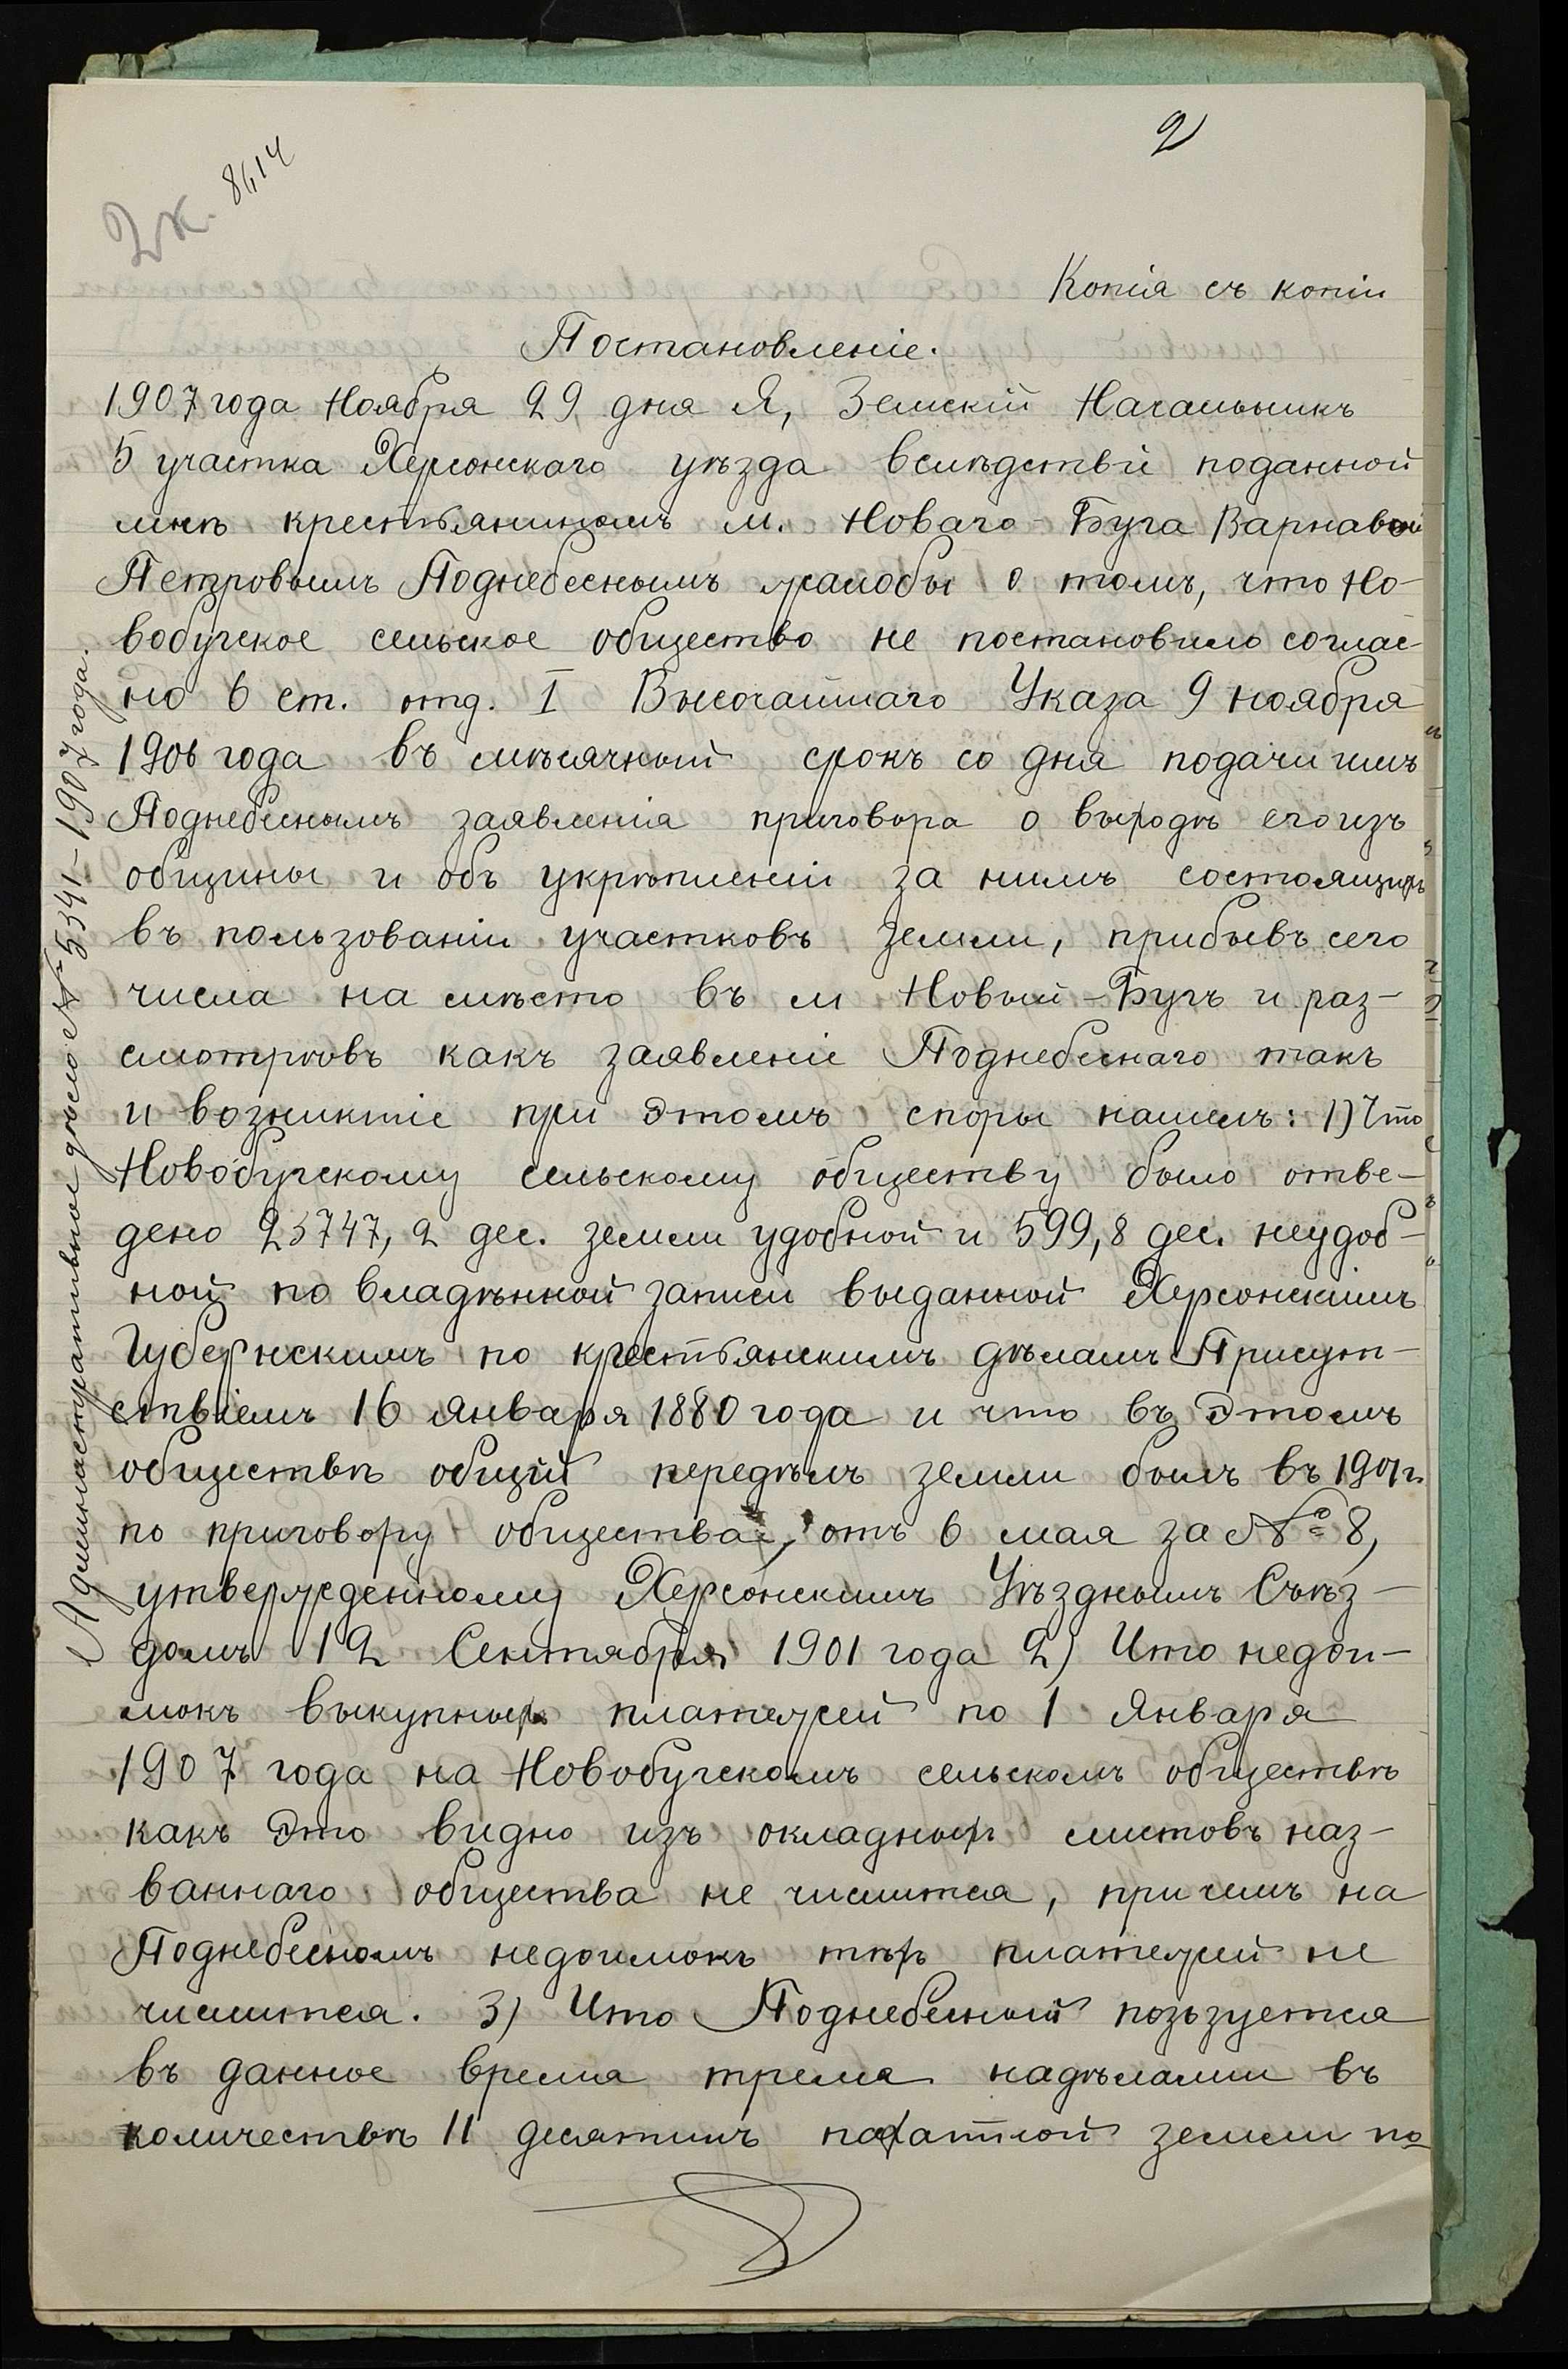 2
8614
Копія съ копіи
Постановленіе.
1907 года Ноября 29 дня Я, Земскій Начальникъ
5 участка Херсонскаго уѣзда вслѣдствіи поданной
мнѣ крестьяниномъ м. Новаго-Буга Варнавой
Петровымъ Поднебеснымъ жалобы о томъ, что Но-
вобугское сельское общество не постановило соглас-
но 6 ст. отд. I Высочайшаго Указа 9 ноября
1906 года въ мѣсячный срокъ со дня подачи имъ
Поднебеснымъ заявленія приговора о выходѣ его изъ
общины и объ укрѣпленіи за нимъ состоящихъ
въ пользованіи участковъ земли, прибывъ сего
числа на мѣсто въ м Новый-Бугъ и раз-
смотрѣвъ какъ заявленіе Поднебеснаго такъ
и возникшіе при этомъ споры нашелъ: 1) Что
Новобугскому сельскому обществу было отве-
дено 25747,2 дес. земли удобной и 599,8 дес. неудоб-
ной по владѣнной записи выданной Херсонскимъ
Губернскимъ по крестьянскимъ дѣламъ Присут-
ствіемъ 16 января 1880 года и что въ этомъ
обществѣ общій передѣлъ земли былъ въ 1901 г.
по приговору общества, отъ 6 мая за № 8,
утвержденному Херсонскимъ Уѣзднымъ Съѣз-
домъ 12 Сентября 1901 года 2) Что недои-
мокъ выкупныхъ платежей по 1 Января
1907 года на Новобугскомъ сельскомъ обществѣ
какъ это видно изъ окладныхъ листовъ наз-
ваннаго общества не числится, при чемъ на
Поднебесномъ недоимокъ тѣхъ платежей не
числится. 3) Что Поднебесный позьзуется
въ данное время тремя надѣлами въ
количествѣ 11 десятинъ пахатной земли по
Административное дѣло № 5341-1907 года.